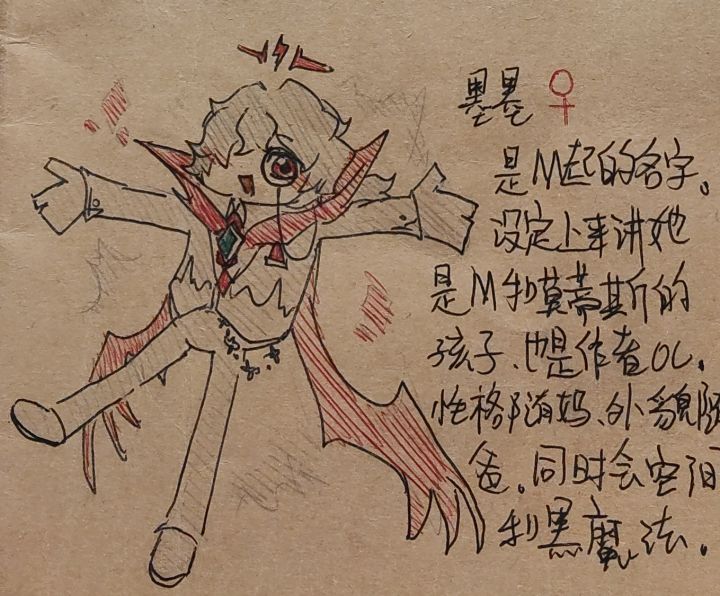 墨墨 ♀
是M起的名字。
设定上来讲她
是M和莫蒂斯的
孩子、也是作者OC。
性格随妈、外貌随
爸。同时会空间
和黑魔法.